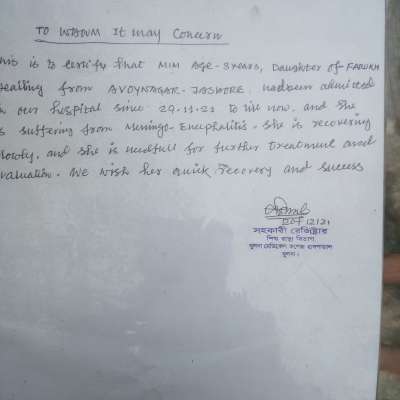 TO WHOUM It may Concern
This is to certify that MIM Age-3years, Daughter of FARUKH
Healing from AVOYNAGAR-JASHORE. hadbeen admitted
in our hospital since 29.11.21 to till now. and she
is suffering from Meningo-Encephalitis. She is recovering
slowly. and she is needfull for further treatment and
evaluation. We wish her quick recovery and success
12/21
সহকারী রেজিস্ট্রার
শিশু স্বাস্থ্য বিভাগ
খুলনা মেডিকেল কলেজ হাসপাতাল
খুলনা।